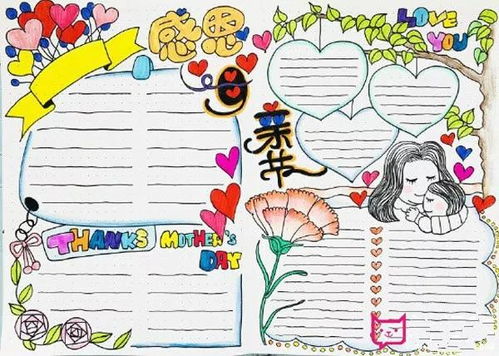 感恩
亲节
LOVE
YOU
THANKS MOTHER'S
DAY